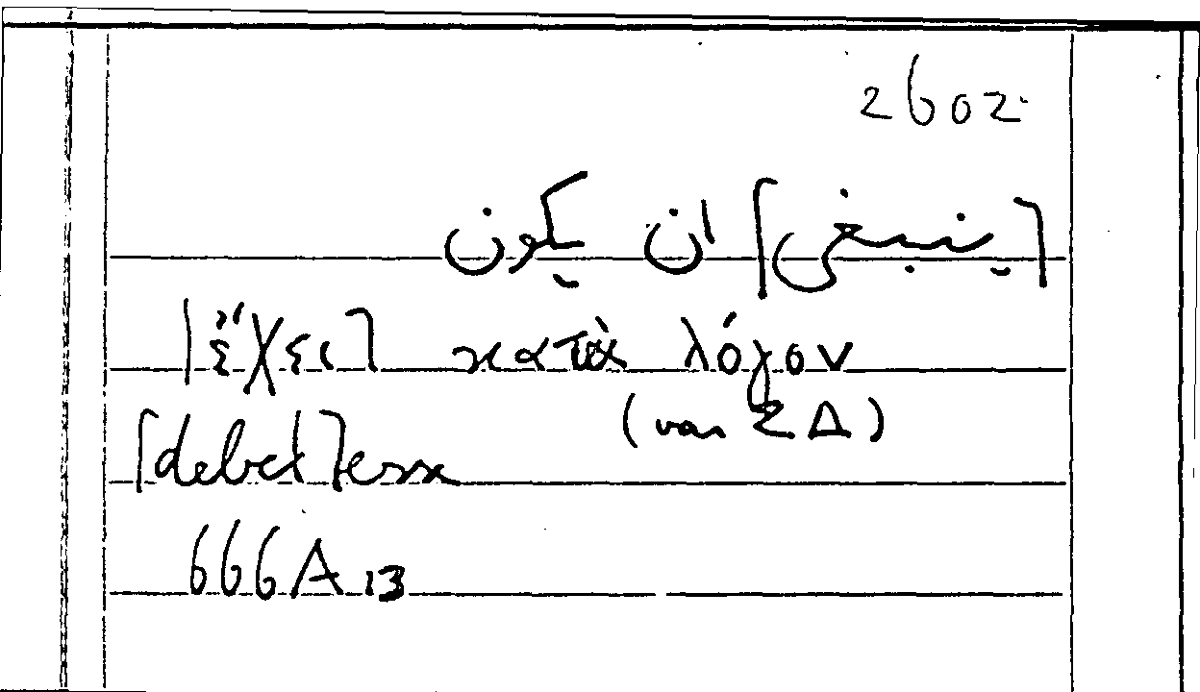 2602
[ينبغى] ان يكون
[ἔχει] κατὰ λόγον
(var ΣΔ)
[debet] esse
666A13